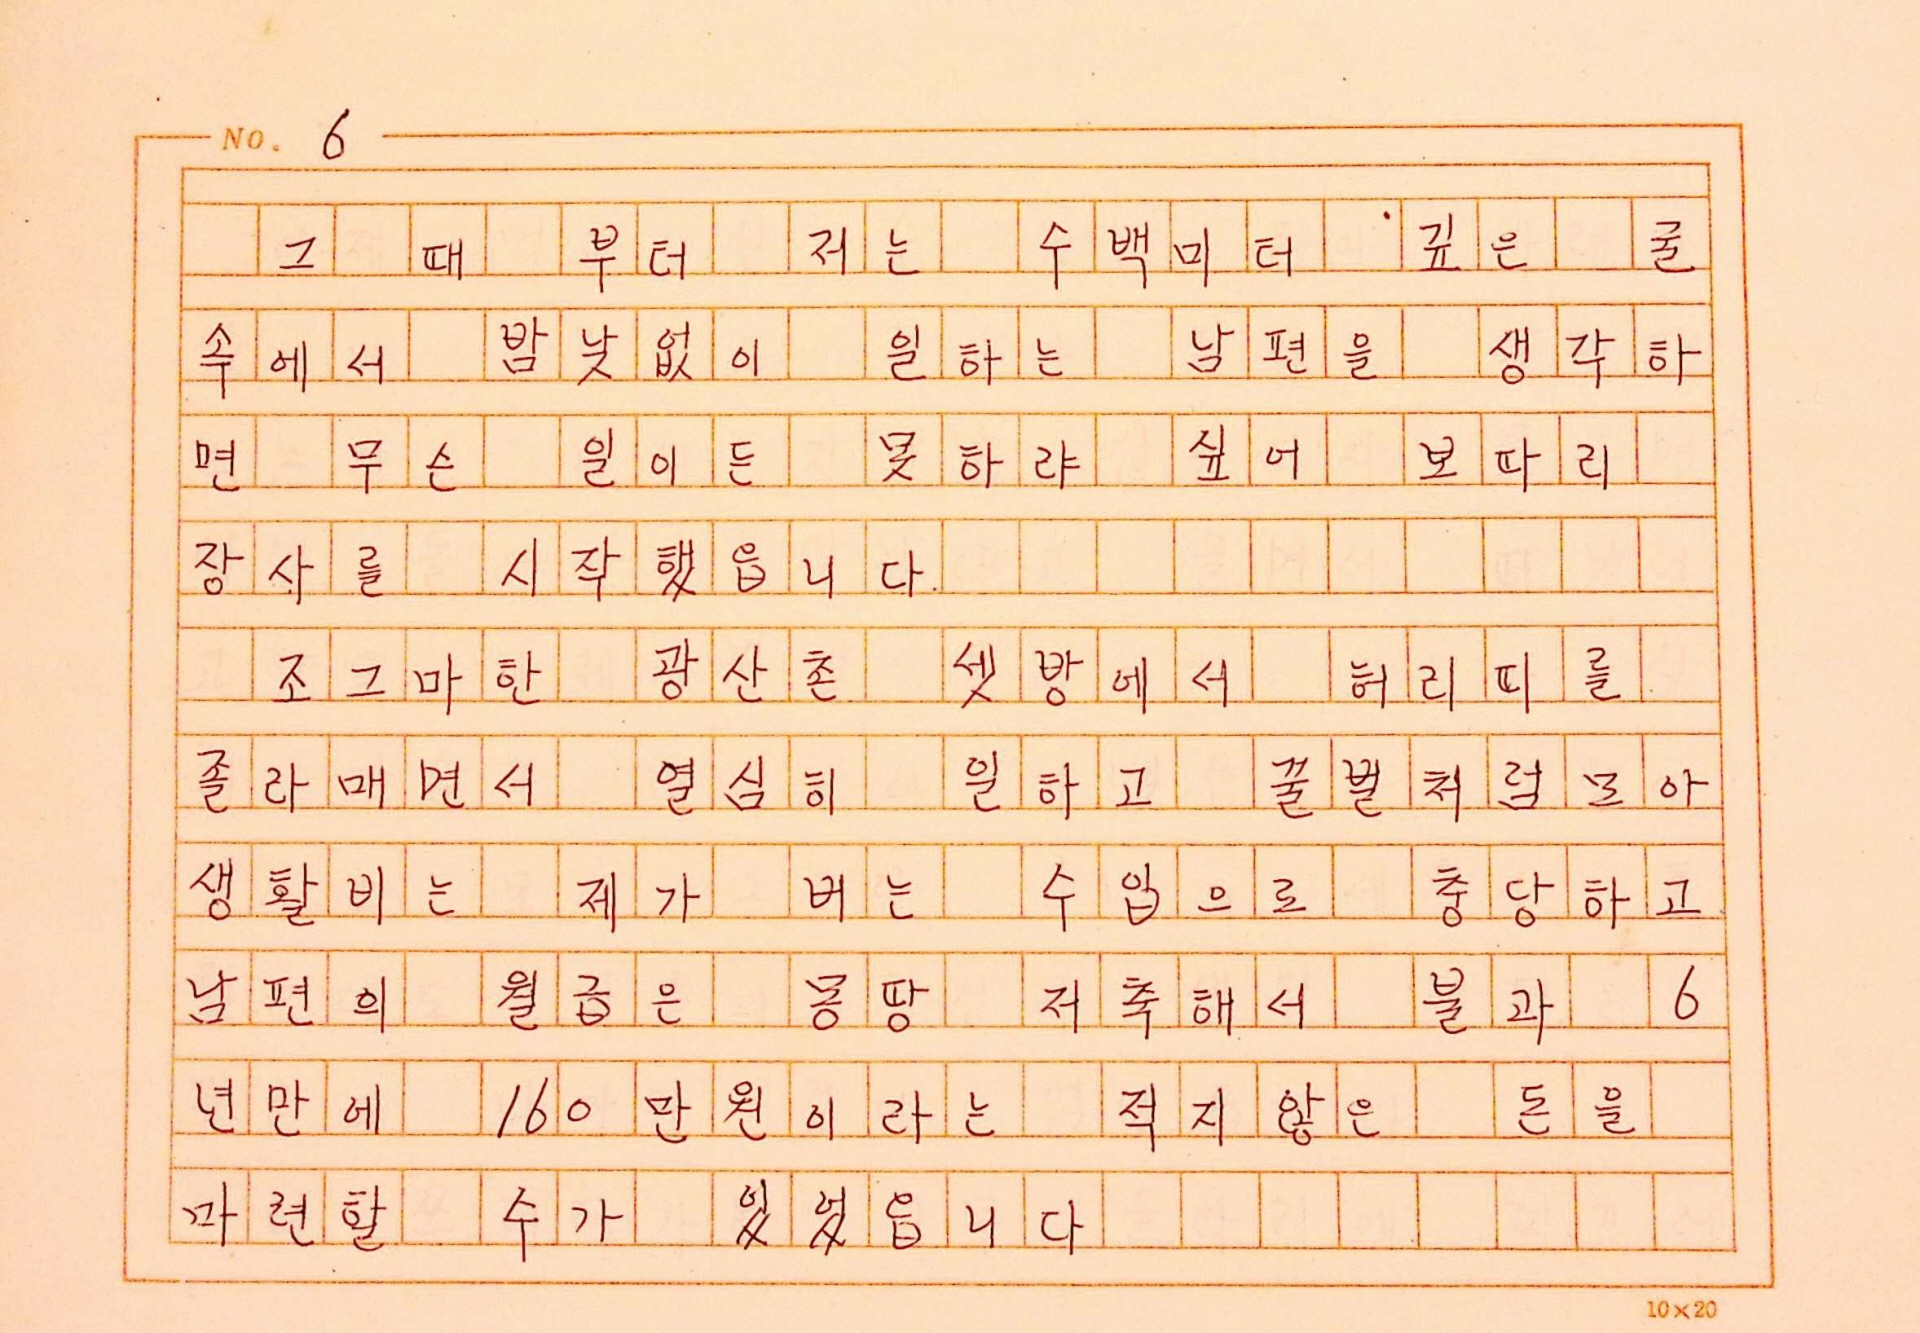 No. 6
그 때 부터 저는 수백미터 깊은 굴
속에서 밤낮없이 일하는 남편을 생각하
면 무슨 일이든 못하랴 싶어 보따리
장사를 시작했읍니다.
조그마한 광산촌 셋방에서 허리띠를
졸라매면서 열심히 일하고 꿀벌처럼모아
생활비는 제가 버는 수입으로 충당하고
남편의 월급은 몽땅 저축해서 불과 6
년만에 160만원이라는 적지않은 돈을
마련할 수가 있었읍니다
10×20